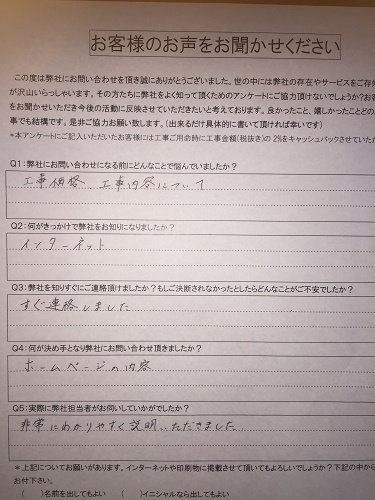 お客様のお声をお聞かせください
この度は弊社にお問い合わせを頂き誠にありがとうございました。世の中には弊社の存在やサービスをご存知
が沢山いらっしゃいます。その方たちに弊社をよく知って頂くためのアンケートにご協力頂けないでしょうか?お客
をお聞かせいただき今後の活動に反映させていただきたいと考えております。良かったこと、嬉しかったことどの
事でも結構です。是非ご協力お願い致します。(出来るだけ具体的に書いて頂ければ幸いです)
*本アンケートにご記入いただいたお客様には工事ご用命時に工事金額(税抜き)の 2%をキャッシュバックさせていた
Q1:弊社にお問い合わせになる前にどんなことで悩んでいましたか?
工事価格、工事内容について
Q2:何がきっかけで弊社をお知りになりましたか?
インターネット
Q3:弊社を知りすぐにご連絡頂けましたか?もしご決断されなかったとしたらどんなことがご不安でしたか?
すぐ連絡しました
Q4:何が決め手となり弊社にお問い合わせ頂きましたか?
ホームページの内容
Q5:実際に弊社担当者がお伺いしていかがでしたか?
非常にわかりやすく説明いただきました。
*上記についてお願いがあります。インターネットや印刷物に掲載させて頂いてもよろしいでしょうか?下記の中か
お付下さい。
( )名前を出してもよい ( )イニシャルなら出してもよい